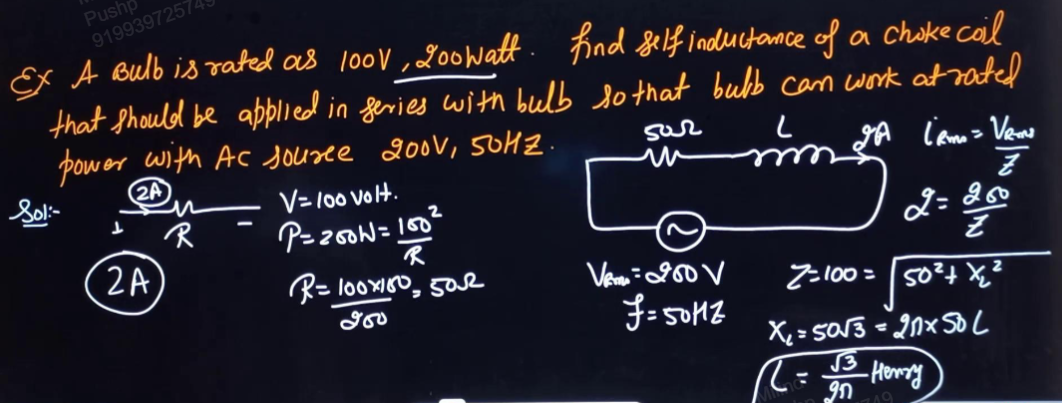 Pushp
919939725749
Ex A Bulb is rated as 100V, 200Watt. find self inductance of a choke coil
that should be applied in series with bulb so that bulb can work at rated
power with AC source 200V, 50HZ.
Sol:-
2A
R
2A
V=100 Volt.
P=200W=100²/R
R=100×100/200=50Ω
50Ω L 2A
VRms=200V
f=50HZ
iRms=VRms/Z
2=200/Z
Z=100=√50²+XL²
XL=50√3=2π×50L
L=√3/2π Henry